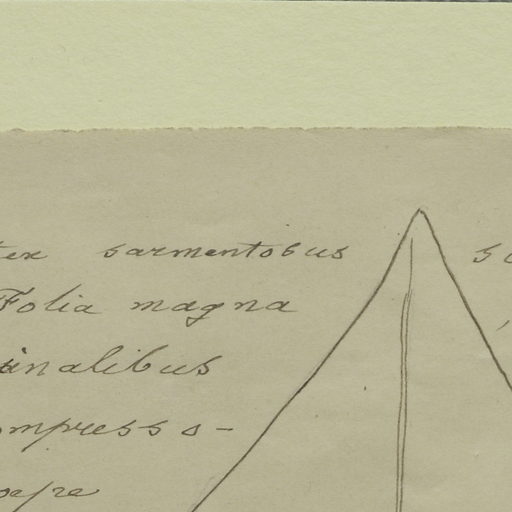 tex sarmentosus so
Folia magna
inalibus
ompresso-